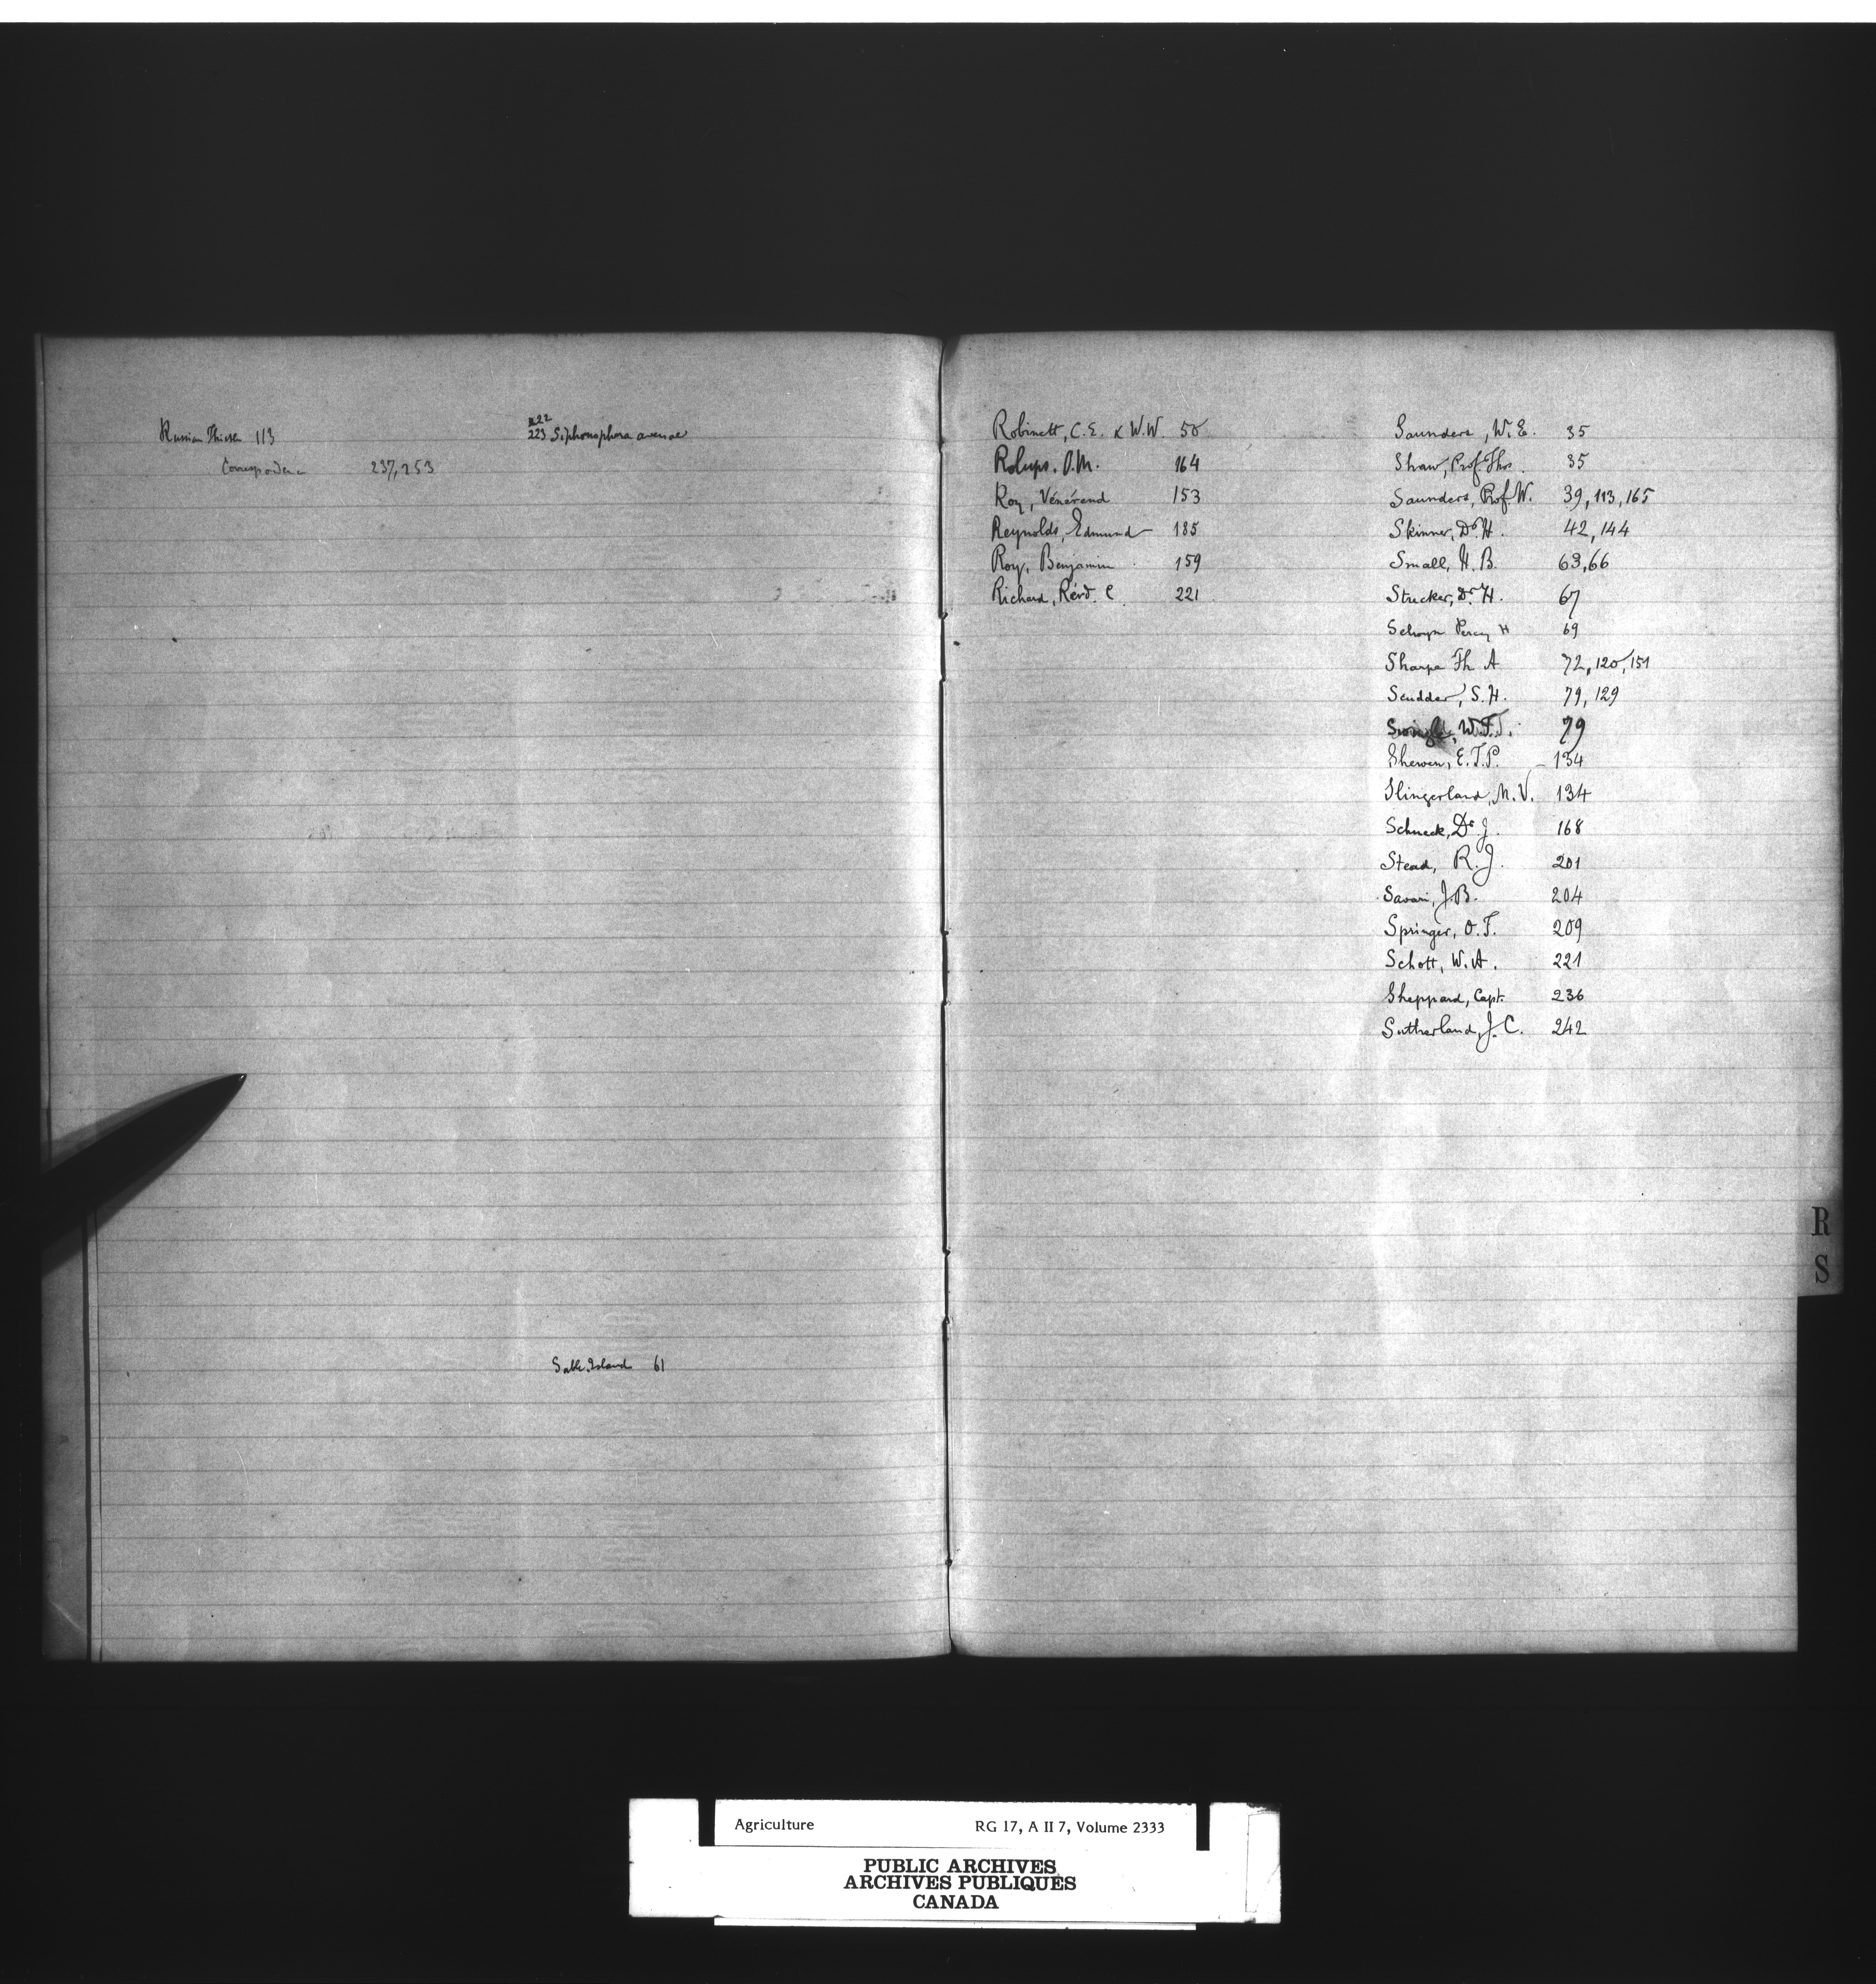 Russian Thistle 113
Correspondence 237, 253
222
223 Siphonophora avenae
Sable Island 61
Robinett, C.E. & W.W. 50
164
Roy, Vénérend 153
Reynolds, Edmund 185
Roy, Benjamin 159
Richard, Révd. C. 221
Saunders, W.E. 35
Shaw, Prof Thos. 35
Saunders, Prof. W. 39, 113, 165
Skinner, Dr. H. 42, 144
Small, H.B. 63, 66
Strecker, Dr. H. 67
Selwyn Percy H 69
Sharpe Th. A 72, 120, 151
Scudder, S.H. 79, 129
Swingle, W.T. 79
Shewen, E.T.P. - 134
Slingerland, M.V. 134
Schneck, Dr J. 168
Stead, R.J. 201
Savari, J.B. 204
Springer, O.F. 209
Schott, W.A. 221
Sheppard, Capt. 236
Sutherland, J.C. 242
R
S
Agriculture RG 17, A II 7, Volume 2333
PUBLIC ARCHIVES
ARCHIVES PUBLIQUES
CANADA